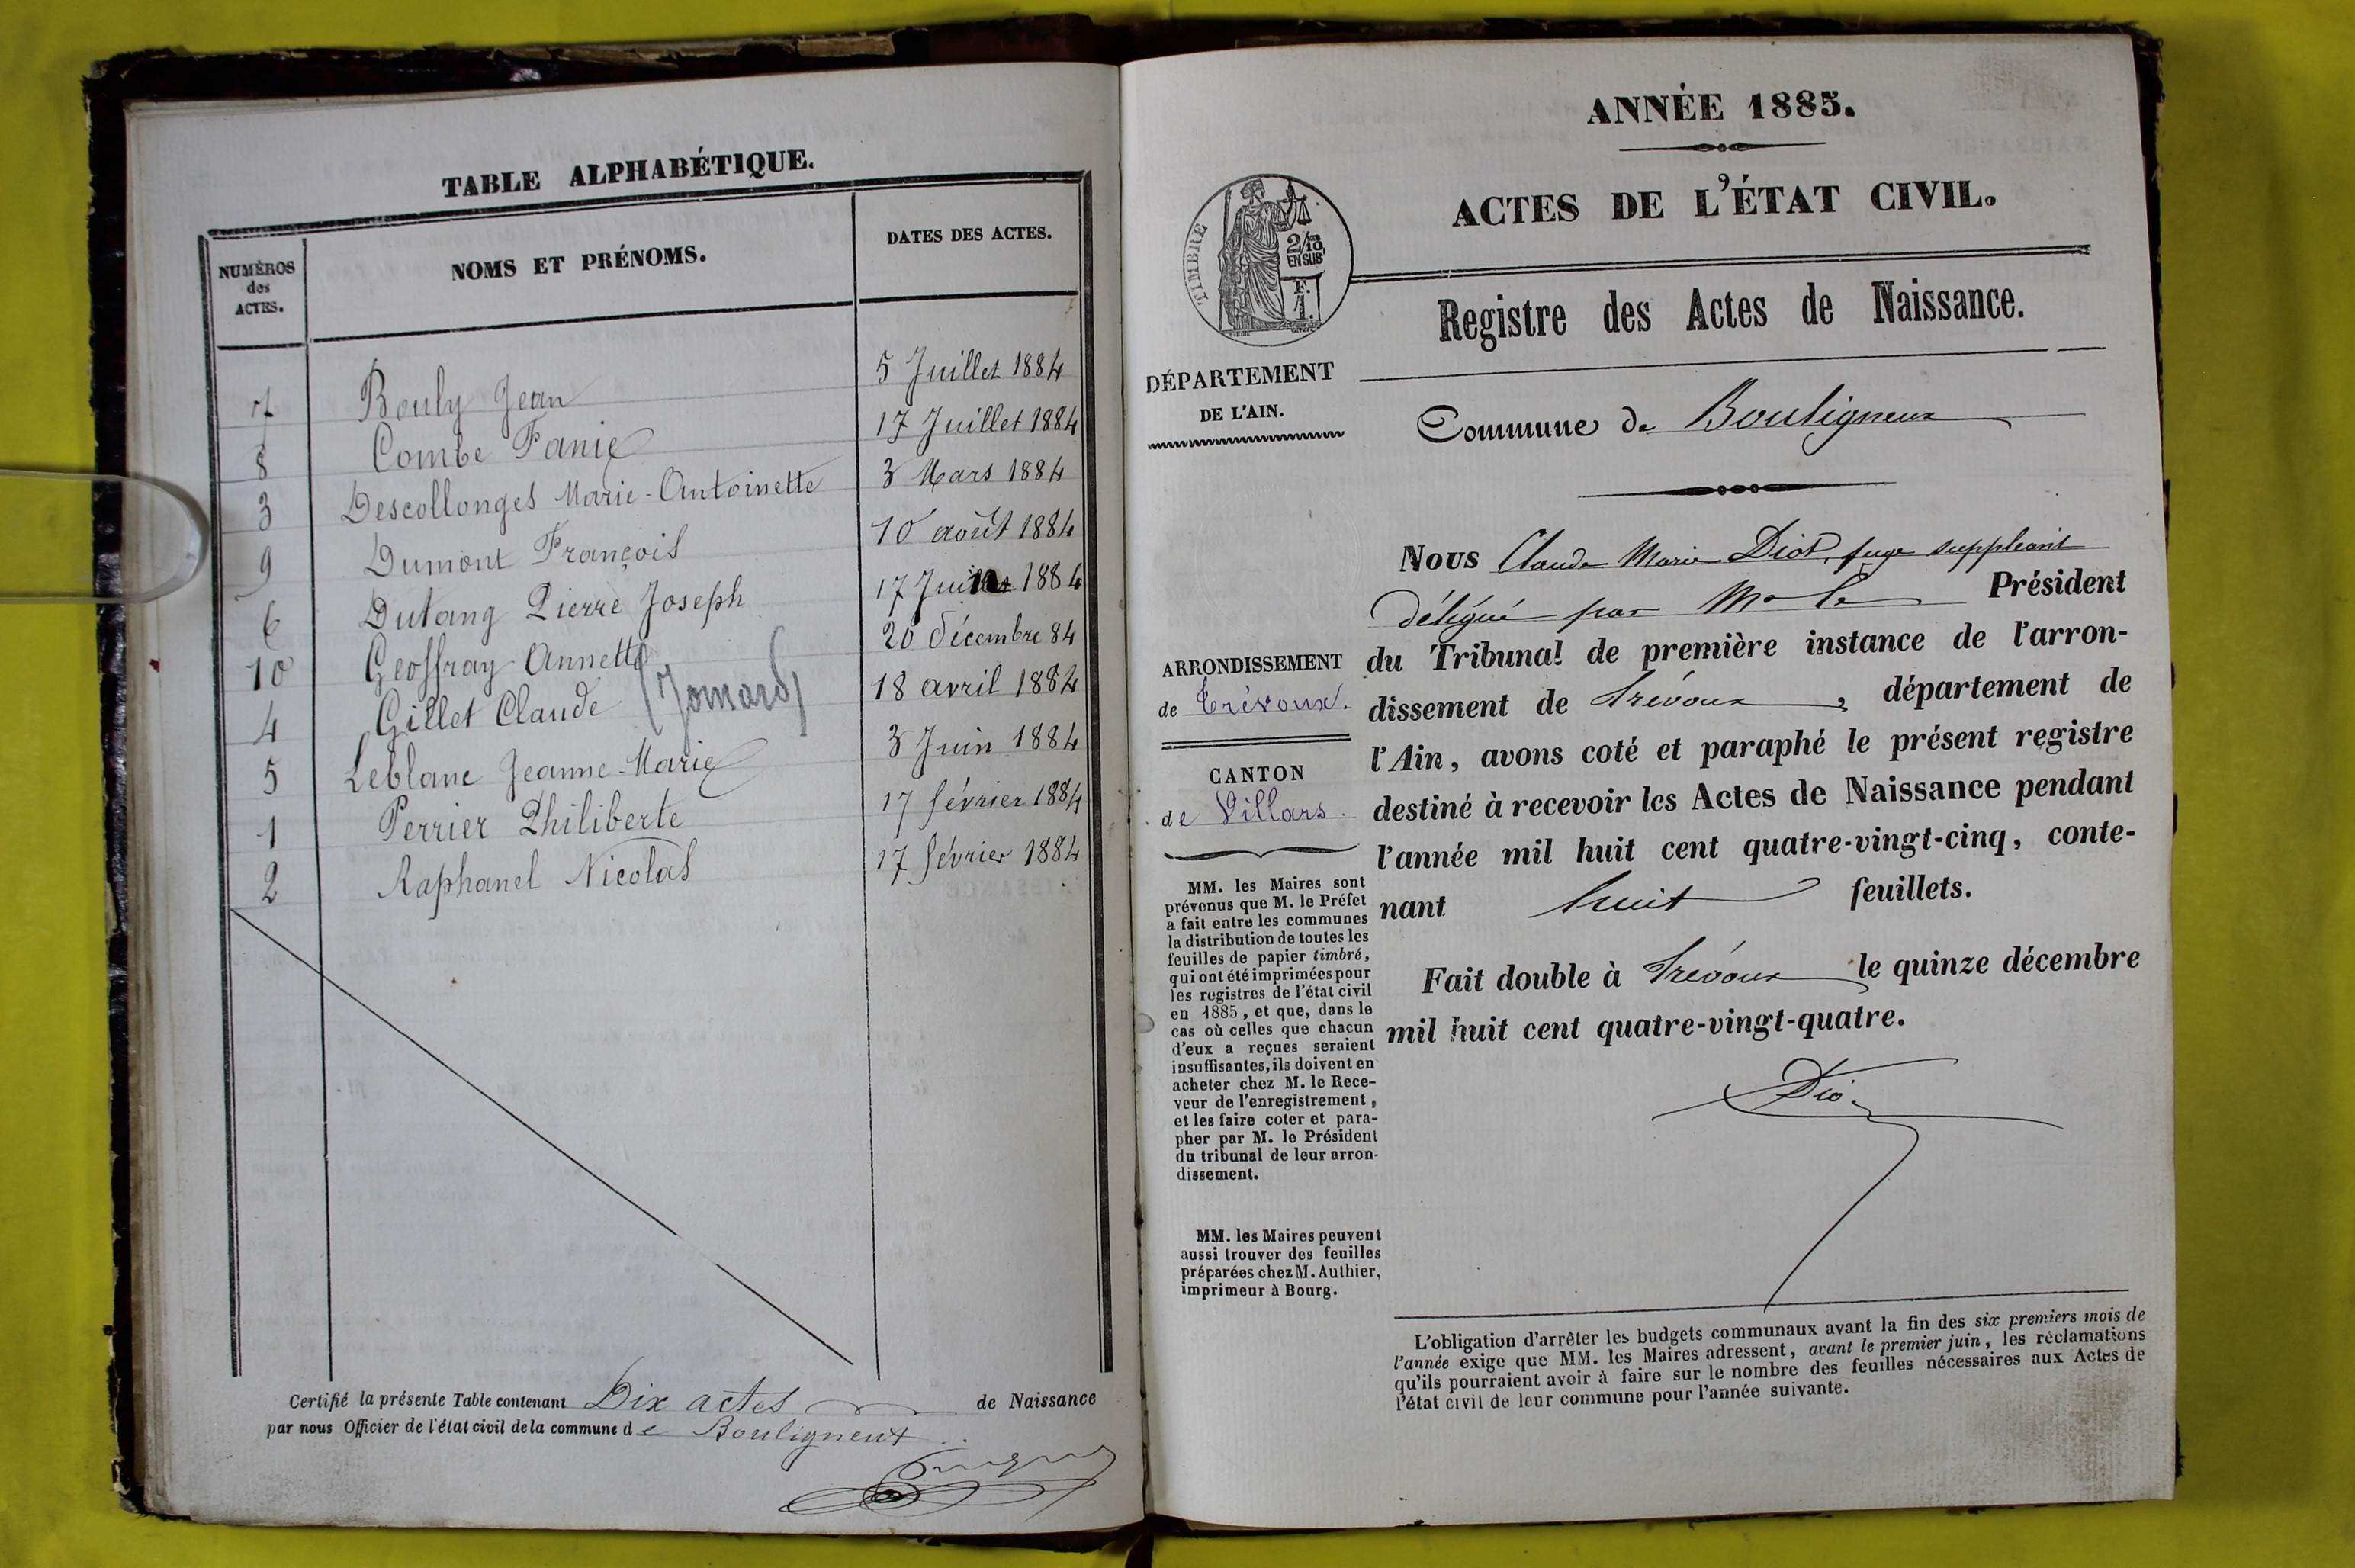 TABLE ALPHABÉTIQUE.
NUMÉROS
des
ACTES.
NOMS ET PRÉNOMS.
DATES DES ACTES.
7 Bouly Jean 5 Juillet 1884
8 Combe Fanie 17 Juillet 1884
3 Descollonges Marie-Antoinette 3 Mars 1884
9 Dumont François 10 août 1884
6 Dutang Pierre Joseph 17 Juin 1884
10 Geoffray Annette 20 décembre 84
4 Gillet Claude (Jomard) 18 avril 1884
5 Leblanc Jeanne-Marie 3 Juin 1884
1 Perrier Philiberte 17 février 1884
2 Raphanel Nicolas 17 février 1884
Certifié la présente Table contenant Dix actes de Naissance
par nous Officier de l'état civil de la commune de Bouligneux
ANNÉE 1885.
ACTES DE L'ÉTAT CIVIL.
TIMBRE
2/10
EN SUS
F.
1.
Registre des Actes de Naissance.
DÉPARTEMENT
DE L'AIN.
Commune de Bouligneux
Nous Claude Marie Diot, juge suppléant
délégué par Mr le Président
du Tribunal de première instance de l'arron-
dissement de Trévoux, département de
l'Ain, avons coté et paraphé le présent registre
destiné à recevoir les Actes de Naissance pendant
l'année mil huit cent quatre-vingt-cinq, conte-
nant huit feuillets.
Fait double à Trévoux le quinze décembre
mil huit cent quatre-vingt-quatre.
Diot
ARRONDISSEMENT
de Trévoux.
CANTON
de Villars.
MM. les Maires sont
prévenus que M. le Préfet
a fait entre les communes
la distribution de toutes les
feuilles de papier timbré,
qui ont été imprimées pour
les registres de l'état civil
en 1885, et que, dans le
cas où celles que chacun
d'eux a reçues seraient
insuffisantes, ils doivent en
acheter chez M. le Rece-
veur de l'enregistrement,
et les faire coter et para-
pher par M. le Président
du tribunal de leur arron-
dissement.
MM. les Maires peuvent
aussi trouver des feuilles
préparées chez M. Authier,
imprimeur à Bourg.
L'obligation d'arrêter les budgets communaux avant la fin des six premiers mois de
l'année exige que MM. les Maires adressent, avant le premier juin, les réclamations
qu'ils pourraient avoir à faire sur le nombre des feuilles nécessaires aux Actes de
l'état civil de leur commune pour l'année suivante.